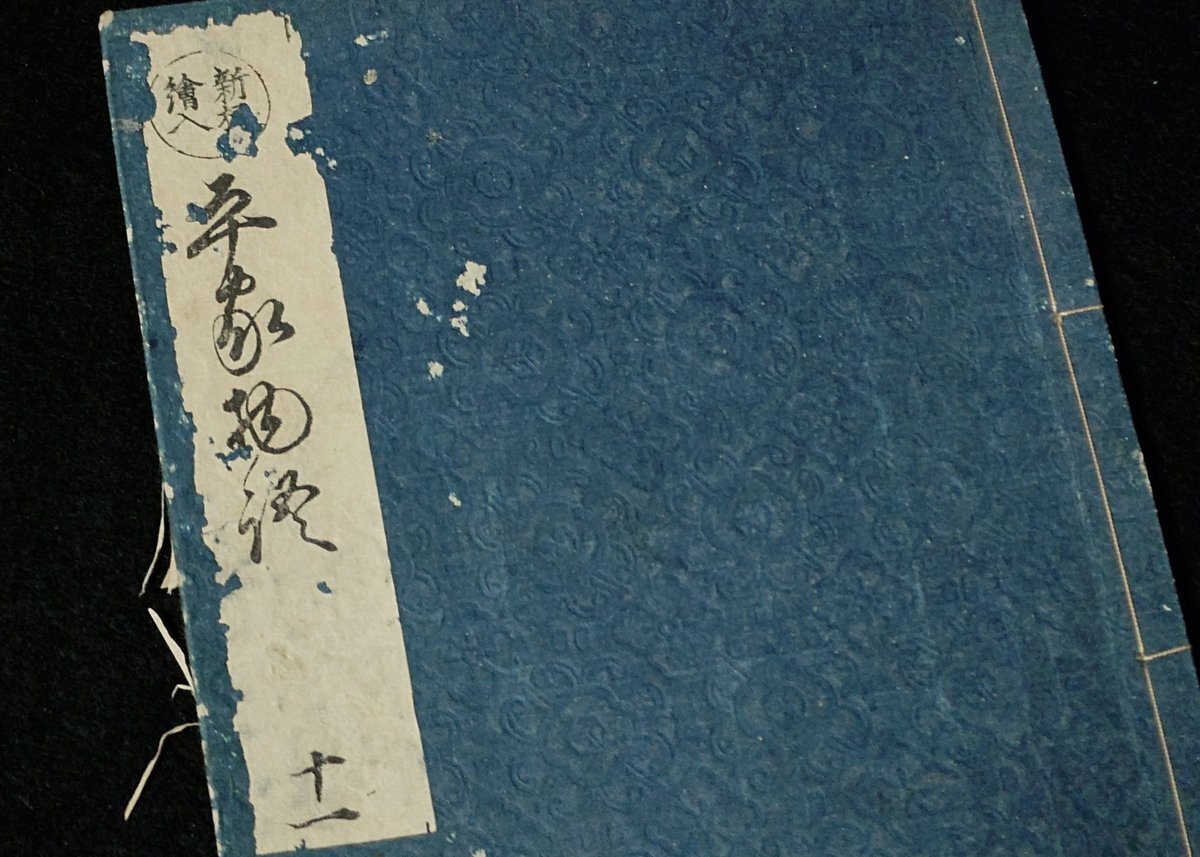 新
繪入
平家物語
十一